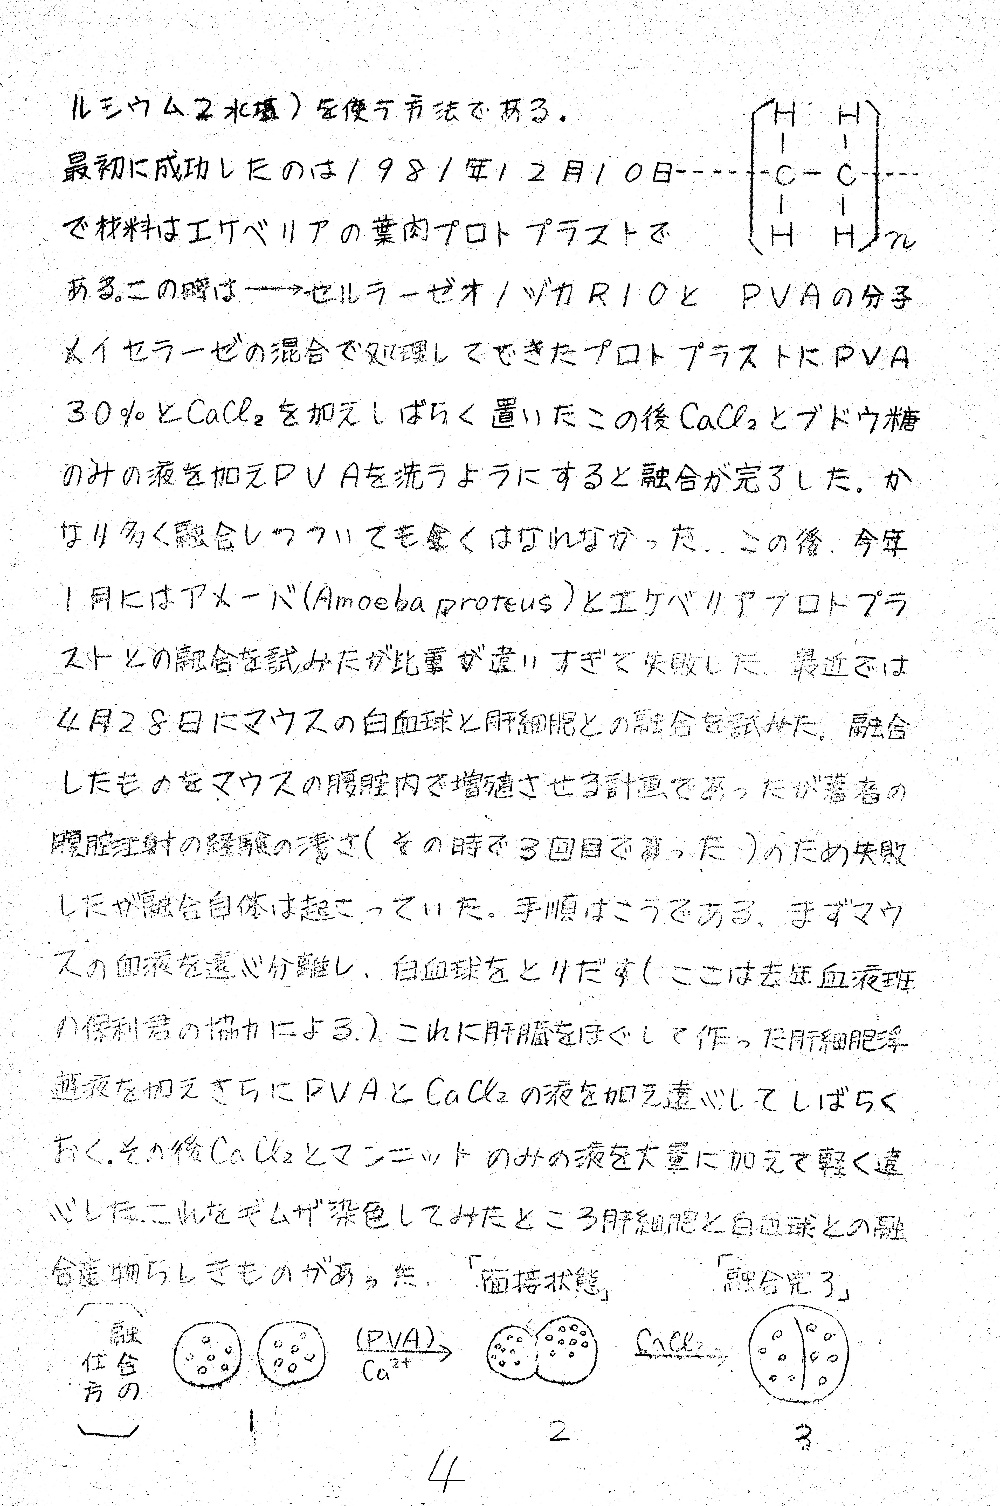 ルシウム2水塩)を使う方法である.
最初に成功したのは1981年12月10日
で材料はエケベリアの葉肉プロトプラストで
ある。この時は→セルラーゼオノヅカR10と PVAの分子
メイセラーゼの混合で処理してできたプロトプラストにPVA
30%とCaCl₂を加えしばらく置いたこの後CaCl₂とブドウ糖
のみの液を加えPVAを洗うようにすると融合が完了した.か
なり多く融合しつついても全くはなれなかった.この後.今年
1月にはアメーバ(Amoeba proteus)とエケベリアプロトプラ
ストとの融合を試みたが比重が違いすぎて失敗した.最近では
4月28日にマウスの白血球と肝細胞との融合を試みた.融合
したものをマウスの腹腔内で増殖させる計画であったが著者の
腹腔注射の経験の浅さ(その時で3回目であった)のため失敗
したが融合自体は起こっていた。手順はこうである.まずマウ
スの血液を遠心分離し.白血球をとりだす(ここは去年血液班
の保利君の協力による.)これに肝臓をほぐして作った肝細胞浮
遊液を加えさらにPVAとCaCl₂の液を加え遠心してしばらく
おく.その後CaCl₂とマンニットのみの液を大量に加えて軽く遠
心した.これをギムザ染色してみたところ肝細胞と白血球との融
合産物らしきものがあった.
H H
C - C
H H n
「面接状態」 「融合完了」
融合の仕方
(PVA)
Ca²⁺
CaCl₂
1 2 3
4